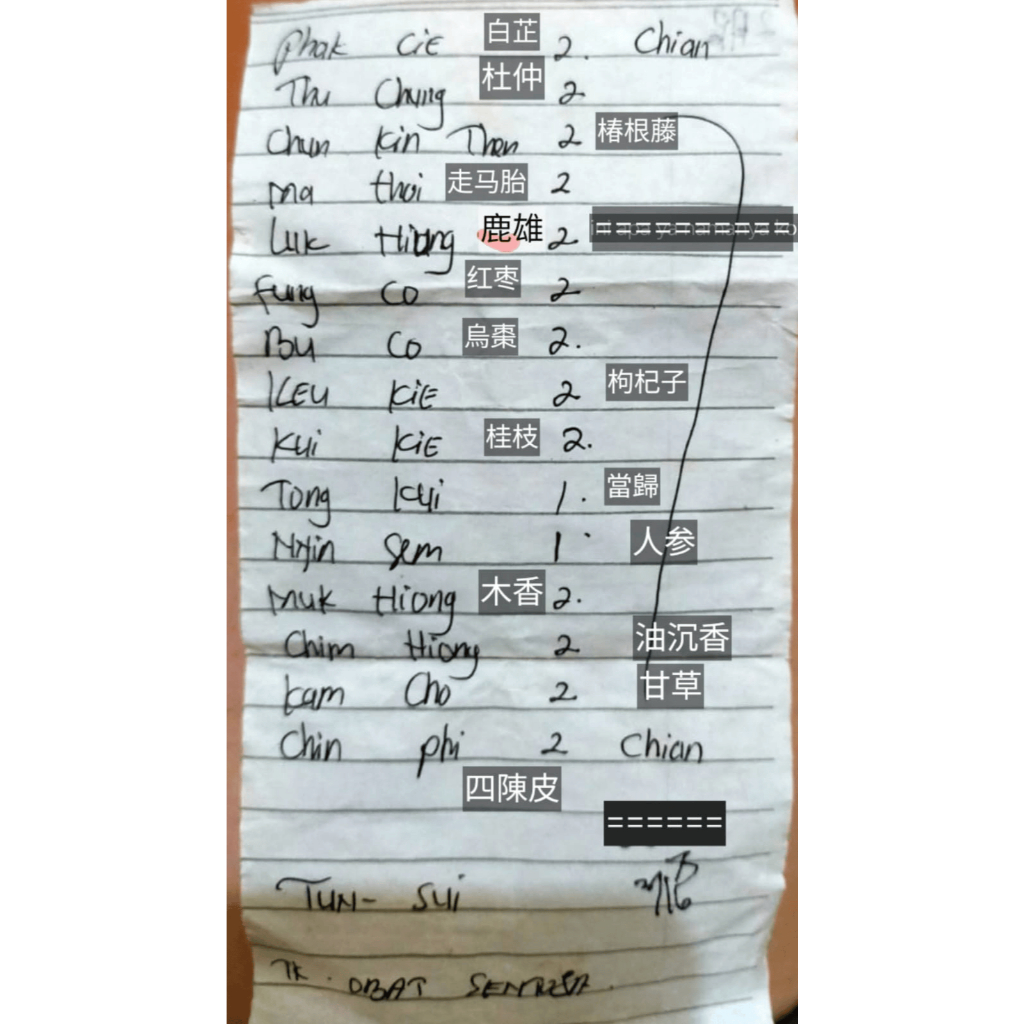 Phak Cie 白芷 2. Chian
Thu Chung 杜仲 2
Chun Kin Then 2 椿根藤
Ma thoi 走马胎 2
Luk Hiong 鹿雄 2
Fung Co 红枣 2
Bu Co 烏棗 2.
KEU KiE 2 枸杞子
Kui KiE 桂枝 2.
Tong Kui 1. 當歸
Nyin Sem 1 人参
Muk Hiong 木香 2.
Chim Hiong 2 油沉香
Kam Cho 2 甘草
Chin phi 2 Chian
四陳皮
======
TUN- SUi
TK. OBAT